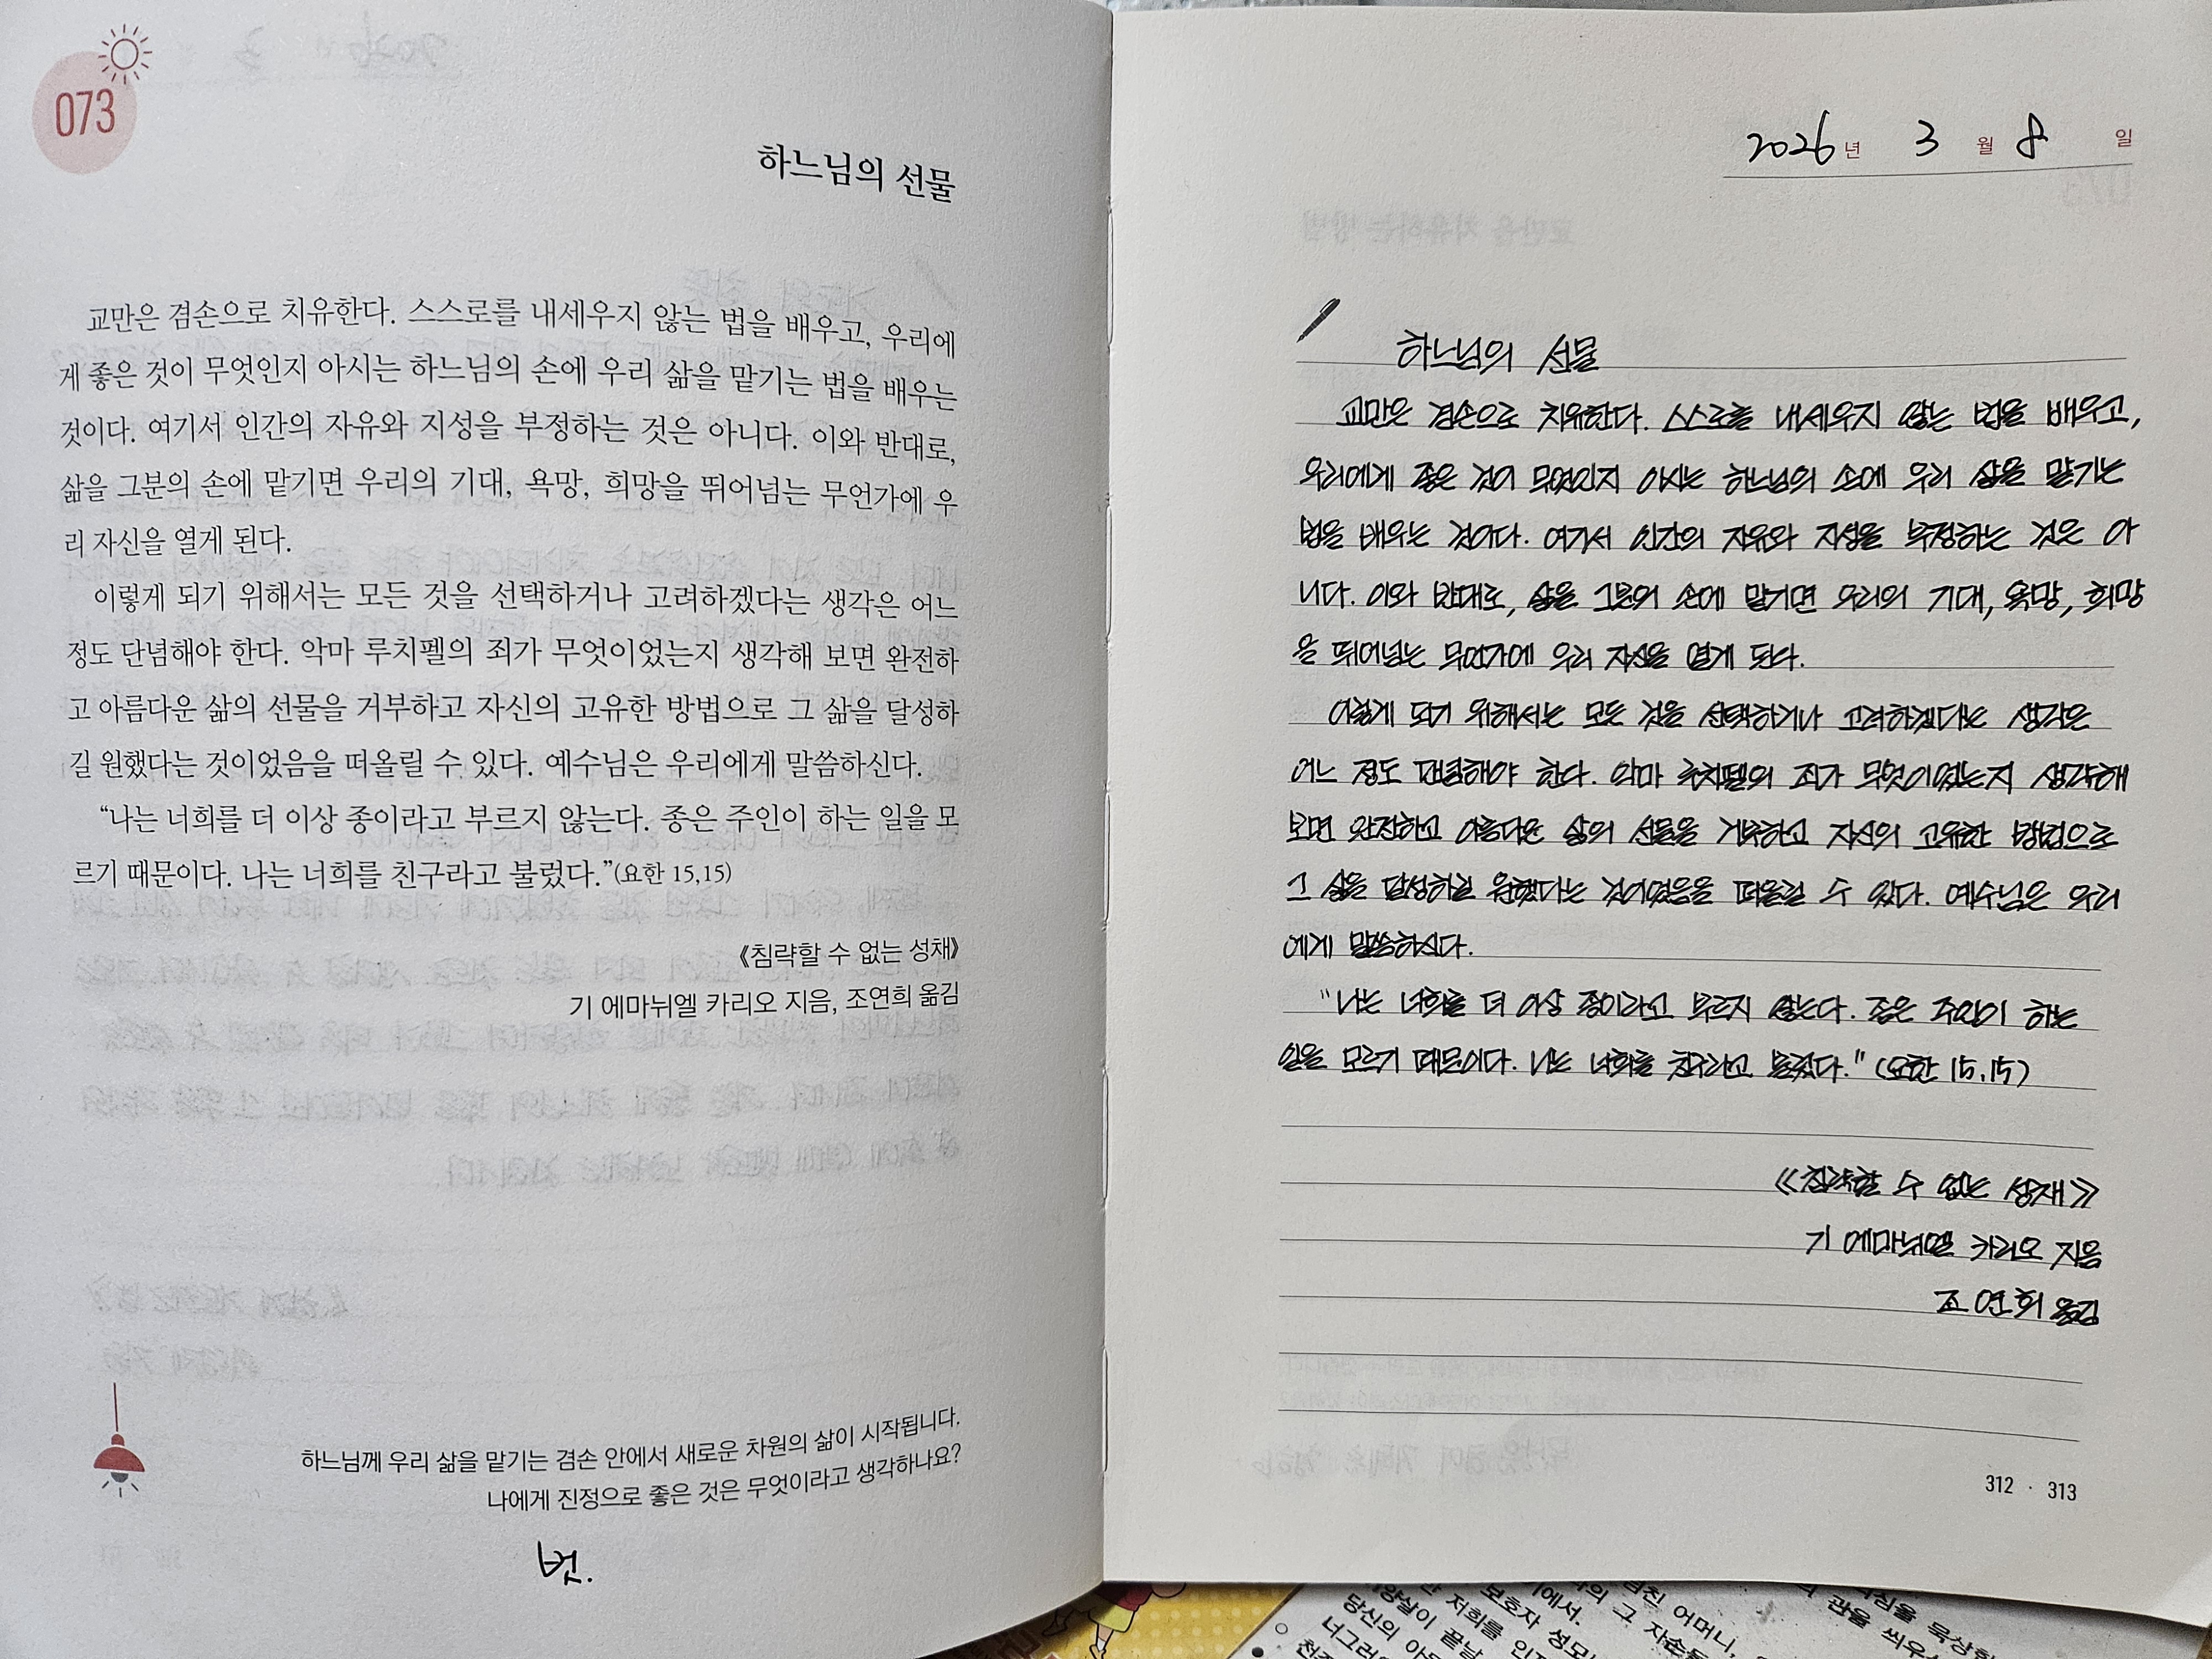 073
하느님의 선물
교만은 겸손으로 치유한다. 스스로를 내세우지 않는 법을 배우고, 우리에
게 좋은 것이 무엇인지 아시는 하느님의 손에 우리 삶을 맡기는 법을 배우는
것이다. 여기서 인간의 자유와 지성을 부정하는 것은 아니다. 이와 반대로,
삶을 그분의 손에 맡기면 우리의 기대, 욕망, 희망을 뛰어넘는 무언가에 우
리 자신을 열게 된다.
이렇게 되기 위해서는 모든 것을 선택하거나 고려하겠다는 생각은 어느
정도 단념해야 한다. 악마 루치펠의 죄가 무엇이었는지 생각해 보면 완전하
고 아름다운 삶의 선물을 거부하고 자신의 고유한 방법으로 그 삶을 달성하
길 원했다는 것이었음을 떠올릴 수 있다. 예수님은 우리에게 말씀하신다.
“나는 너희를 더 이상 종이라고 부르지 않는다. 종은 주인이 하는 일을 모
르기 때문이다. 나는 너희를 친구라고 불렀다.”(요한 15,15)
《침략할 수 없는 성채》
기 에마뉘엘 카리오 지음, 조연희 옮김
하느님께 우리 삶을 맡기는 겸손 안에서 새로운 차원의 삶이 시작됩니다.
나에게 진정으로 좋은 것은 무엇이라고 생각하나요?
벗.
2026년 3월 8일
하느님의 선물
교만은 겸손으로 치유한다. 스스로를 내세우지 않는 법을 배우고,
우리에게 좋은 것이 무엇인지 아시는 하느님의 손에 우리 삶을 맡기는
법을 배우는 것이다. 여기서 인간의 자유와 지성을 부정하는 것은 아
니다. 이와 반대로, 삶을 그분의 손에 맡기면 우리의 기대, 욕망, 희망
을 뛰어넘는 무언가에 우리 자신을 열게 된다.
이렇게 되기 위해서는 모든 것을 선택하거나 고려하겠다는 생각은
어느 정도 단념해야 한다. 악마 루치펠의 죄가 무엇이었는지 생각해
보면 완전하고 아름다운 삶의 선물을 거부하고 자신의 고유한 방법으로
그 삶을 달성하길 원했다는 것이었음을 떠올릴 수 있다. 예수님은 우리
에게 말씀하신다.
"나는 너희를 더 이상 종이라고 부르지 않는다. 종은 주인이 하는
일을 모르기 때문이다. 나는 너희를 친구라고 불렀다." (요한 15,15)
《침략할 수 없는 성채》
기 에마뉘엘 카리오 지음
조연희 옮김
312 · 313
어머니,
보호자 성모
저희를
당신의